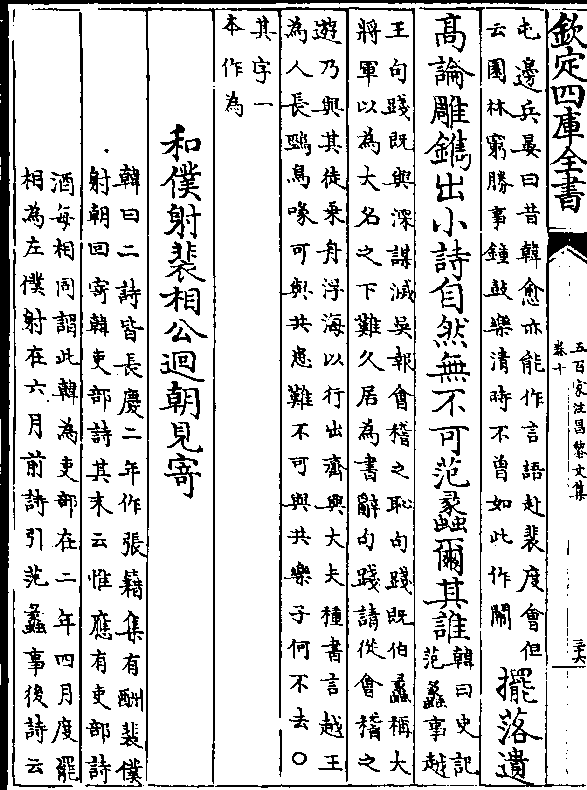 欽定四庫全書
五百家注昌黎文集
卷十
三六
屯邊兵晏曰昔韓愈亦能作言語赴裴度會但
云園林窮勝事鍾鼓樂清時不曾如此作鬧
擺落遺
高論雕鐫出小詩自然無不可范蠡爾其誰
韓曰史記
范蠡事越
王句踐既與深謀滅吳報會稽之恥句踐既伯蠡稱大
將軍以為大名之下難久居為書辭句踐請從會稽之
遊乃與其徒乘舟浮海以行出齊與大夫種書言越王
為人長頸鳥喙可與共患難不可與共樂子何不去○
其字一
本作為
和僕射裴相公迴朝見寄
韓曰二詩皆長慶二年作張籍集有酬裴僕
射朝回寄韓吏部詩其末云惟應有吏部詩
酒每相同謂此韓為吏部在二年四月度罷
相為左僕射在六月前詩引范蠡事後詩云